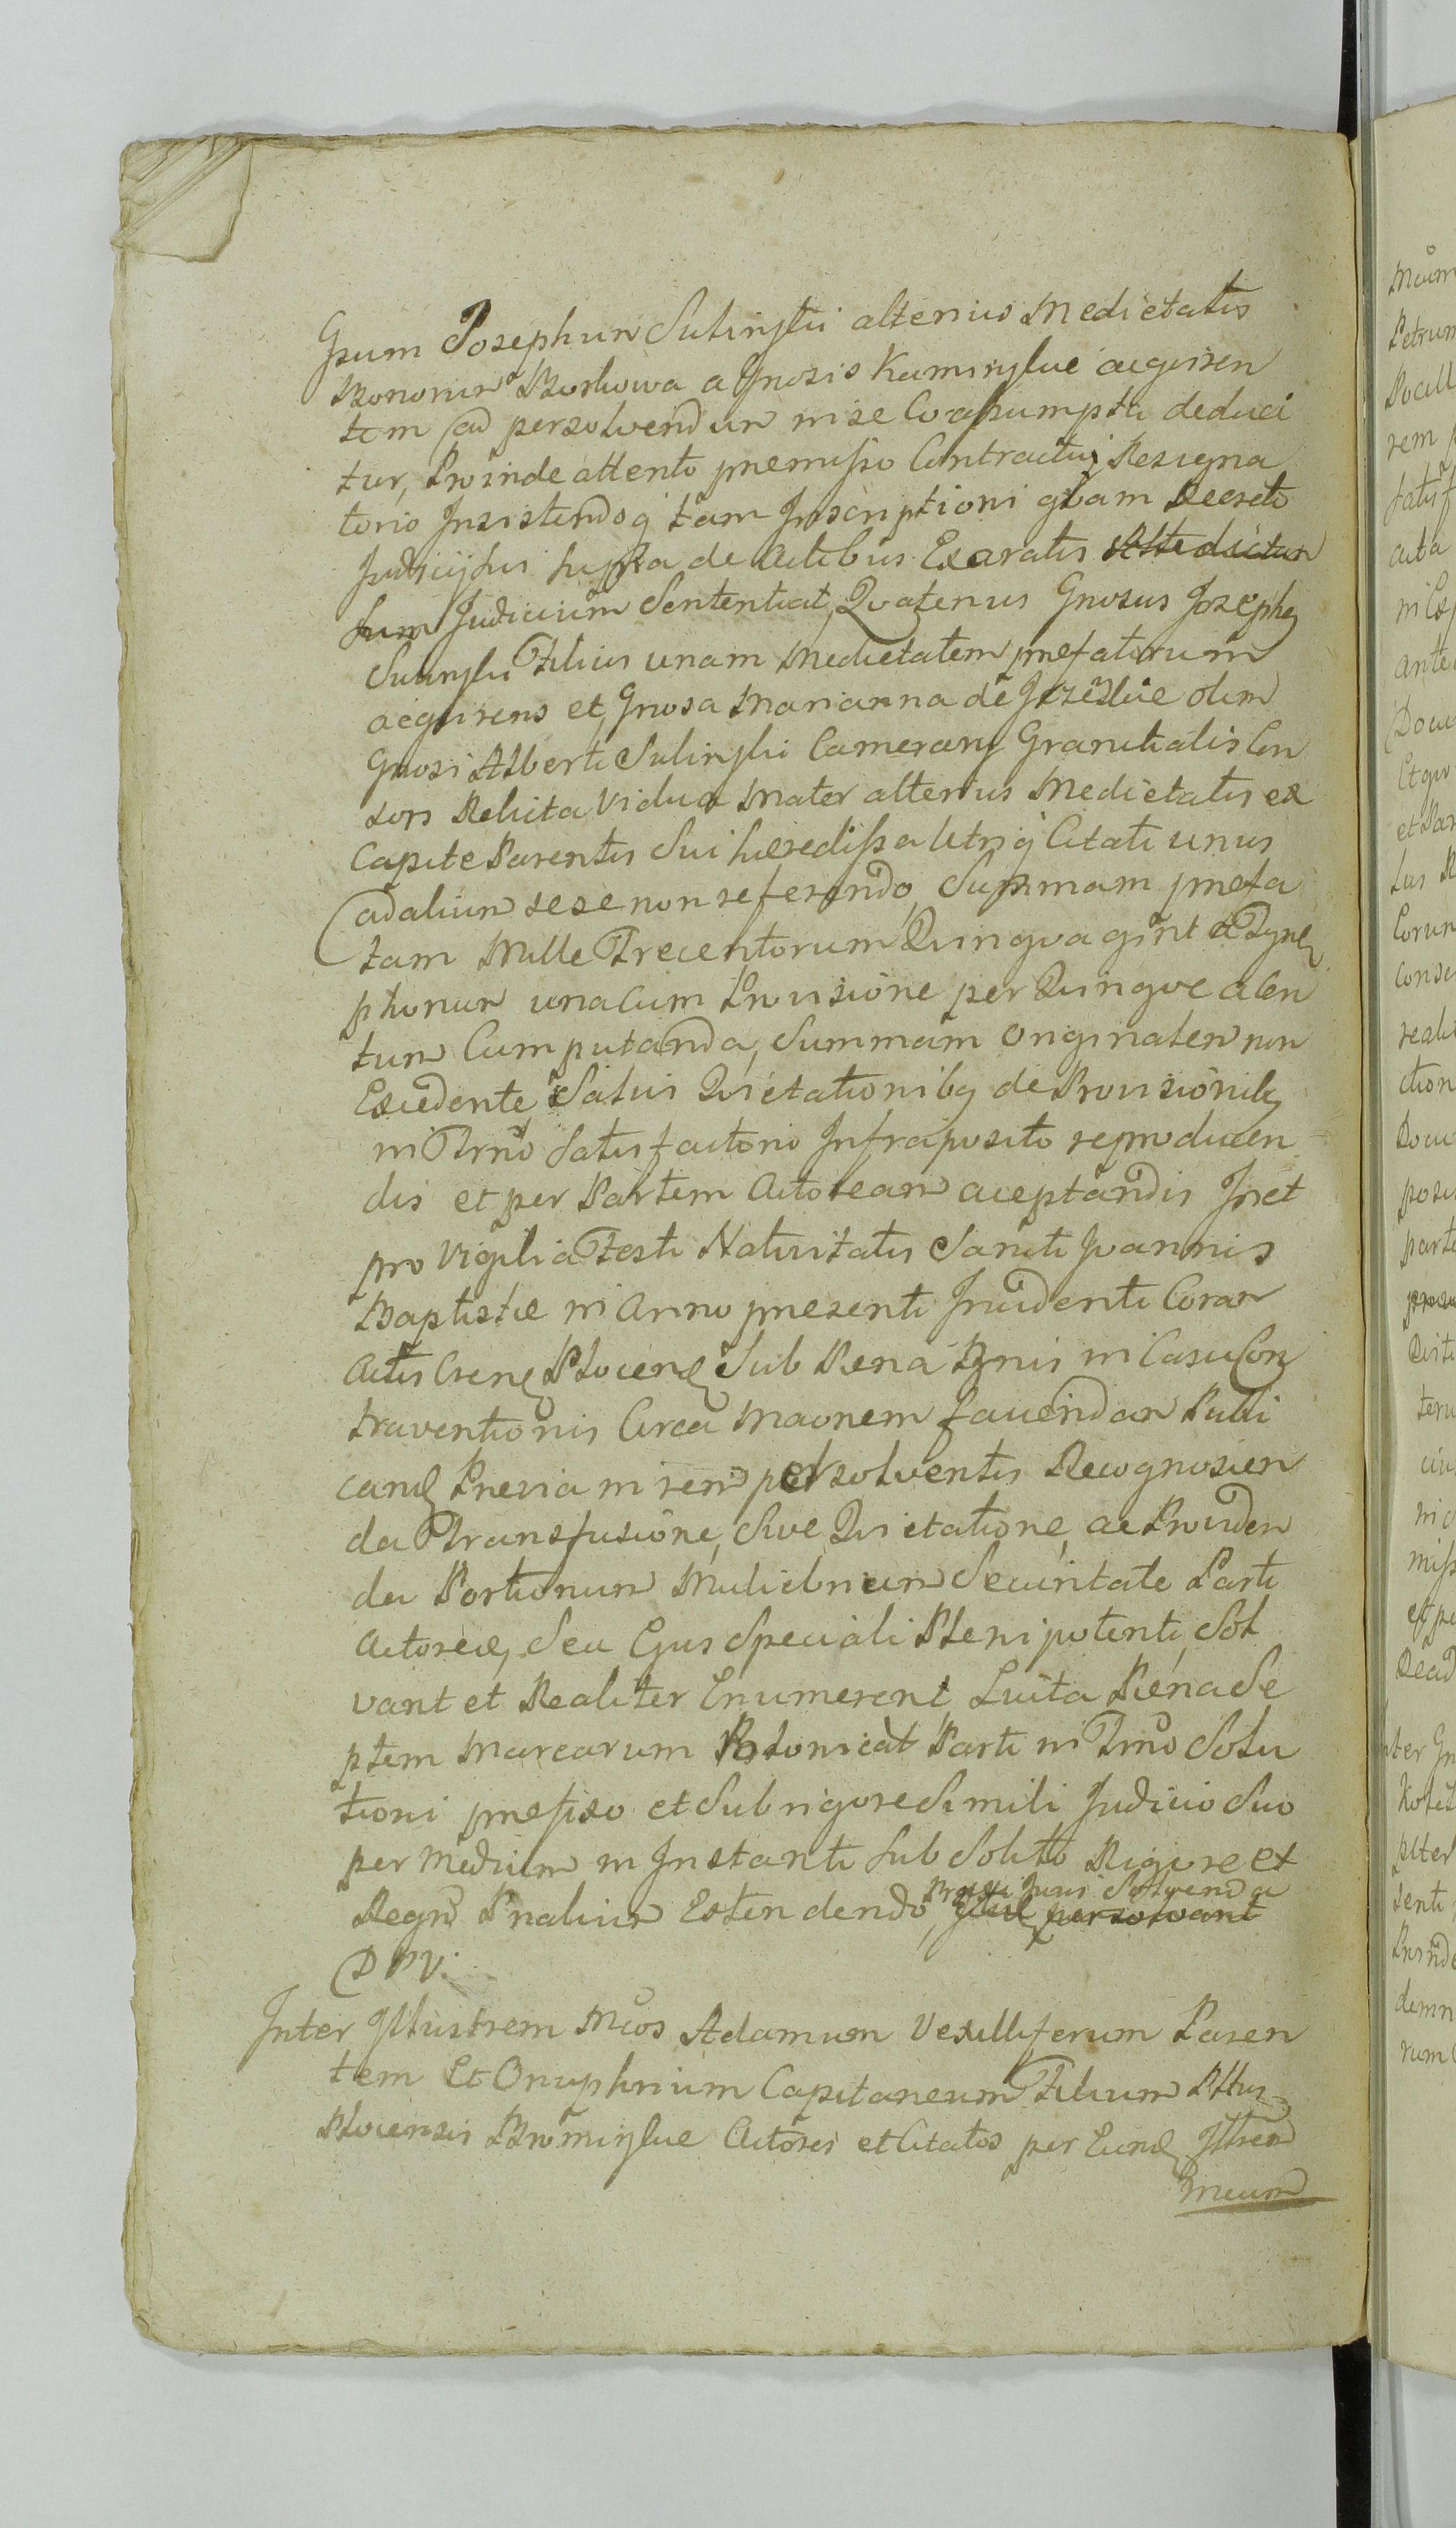 Gsum Josephum Sulinski alterius Medietatis
Bonorum Borkowa a Gnosis Kaminskie acquiren
tem ad persolvendum in se Coassumpta deduci
tur, Proinde attento premisso Contractui Resigna
torio Insistendoq tam Inscriptioni qtam Decreto
Judicij sui supra de Actibus Exaratis
sum Judicium Sententiat, Quatenus Gnosus Joseph9
Sulinski Filius unam Medietatem prefatorum
acquirens et Gnosa Marianna de olim
Gnosi Alberti Sulinski Camerarij Granitialis Con
sors Relicta Vidua Mater alterius Medietatis ex
Capite Parentis Sui Heredissa Utriq Citati unus
ad alium sese non referendo, Summam prefa
tam Mille Trecentorum Quinquagint a Tynf
phonum una Cum Provisione per Quinque a Cen
tum Computanda, Summam Originalem non
Excedente, Salvis Quietationibq de Provisionibq
in Trno Satisfactorio Infraposito reproducen
dis et per Partem Actoream aceptandis Inet
pro Vigilia Festi Nativitatis Sancti Joannis
Baptistæ in Anno presenti Incidenti Coram
Actis Cren Plocen Sub Pena Bnis in Casu Con
traventionis Circa Maonem faciendam Publi
cand Previa in rem persolventis Recognoscen
da Transfusione, Sive Quietatione, ac Providen
da Portionum Muliebrium Securitate Parti
Actoreæ, Seu Ejus Speciali Plenipotenti, Sol
vant et Realiter Enumerent, Luita Pœna Se
ptem Marcarum Polonicat Parti in Trno Solu
tioni prefixo et Sub rigore Simili Judicio Suo
per Medium in Instanti Sub Solito Rigore et
Regno Pnalium Extendendo, Juris Solvenda persolvant
D P V.
Inter Illustrem Mcos Adamum Vexilliferum Paren
tem Et Onuphrium Capitaneum Filium Pttus
Plocensis Bromirskie Actores et Citatos per Eund Illrem
Mcum